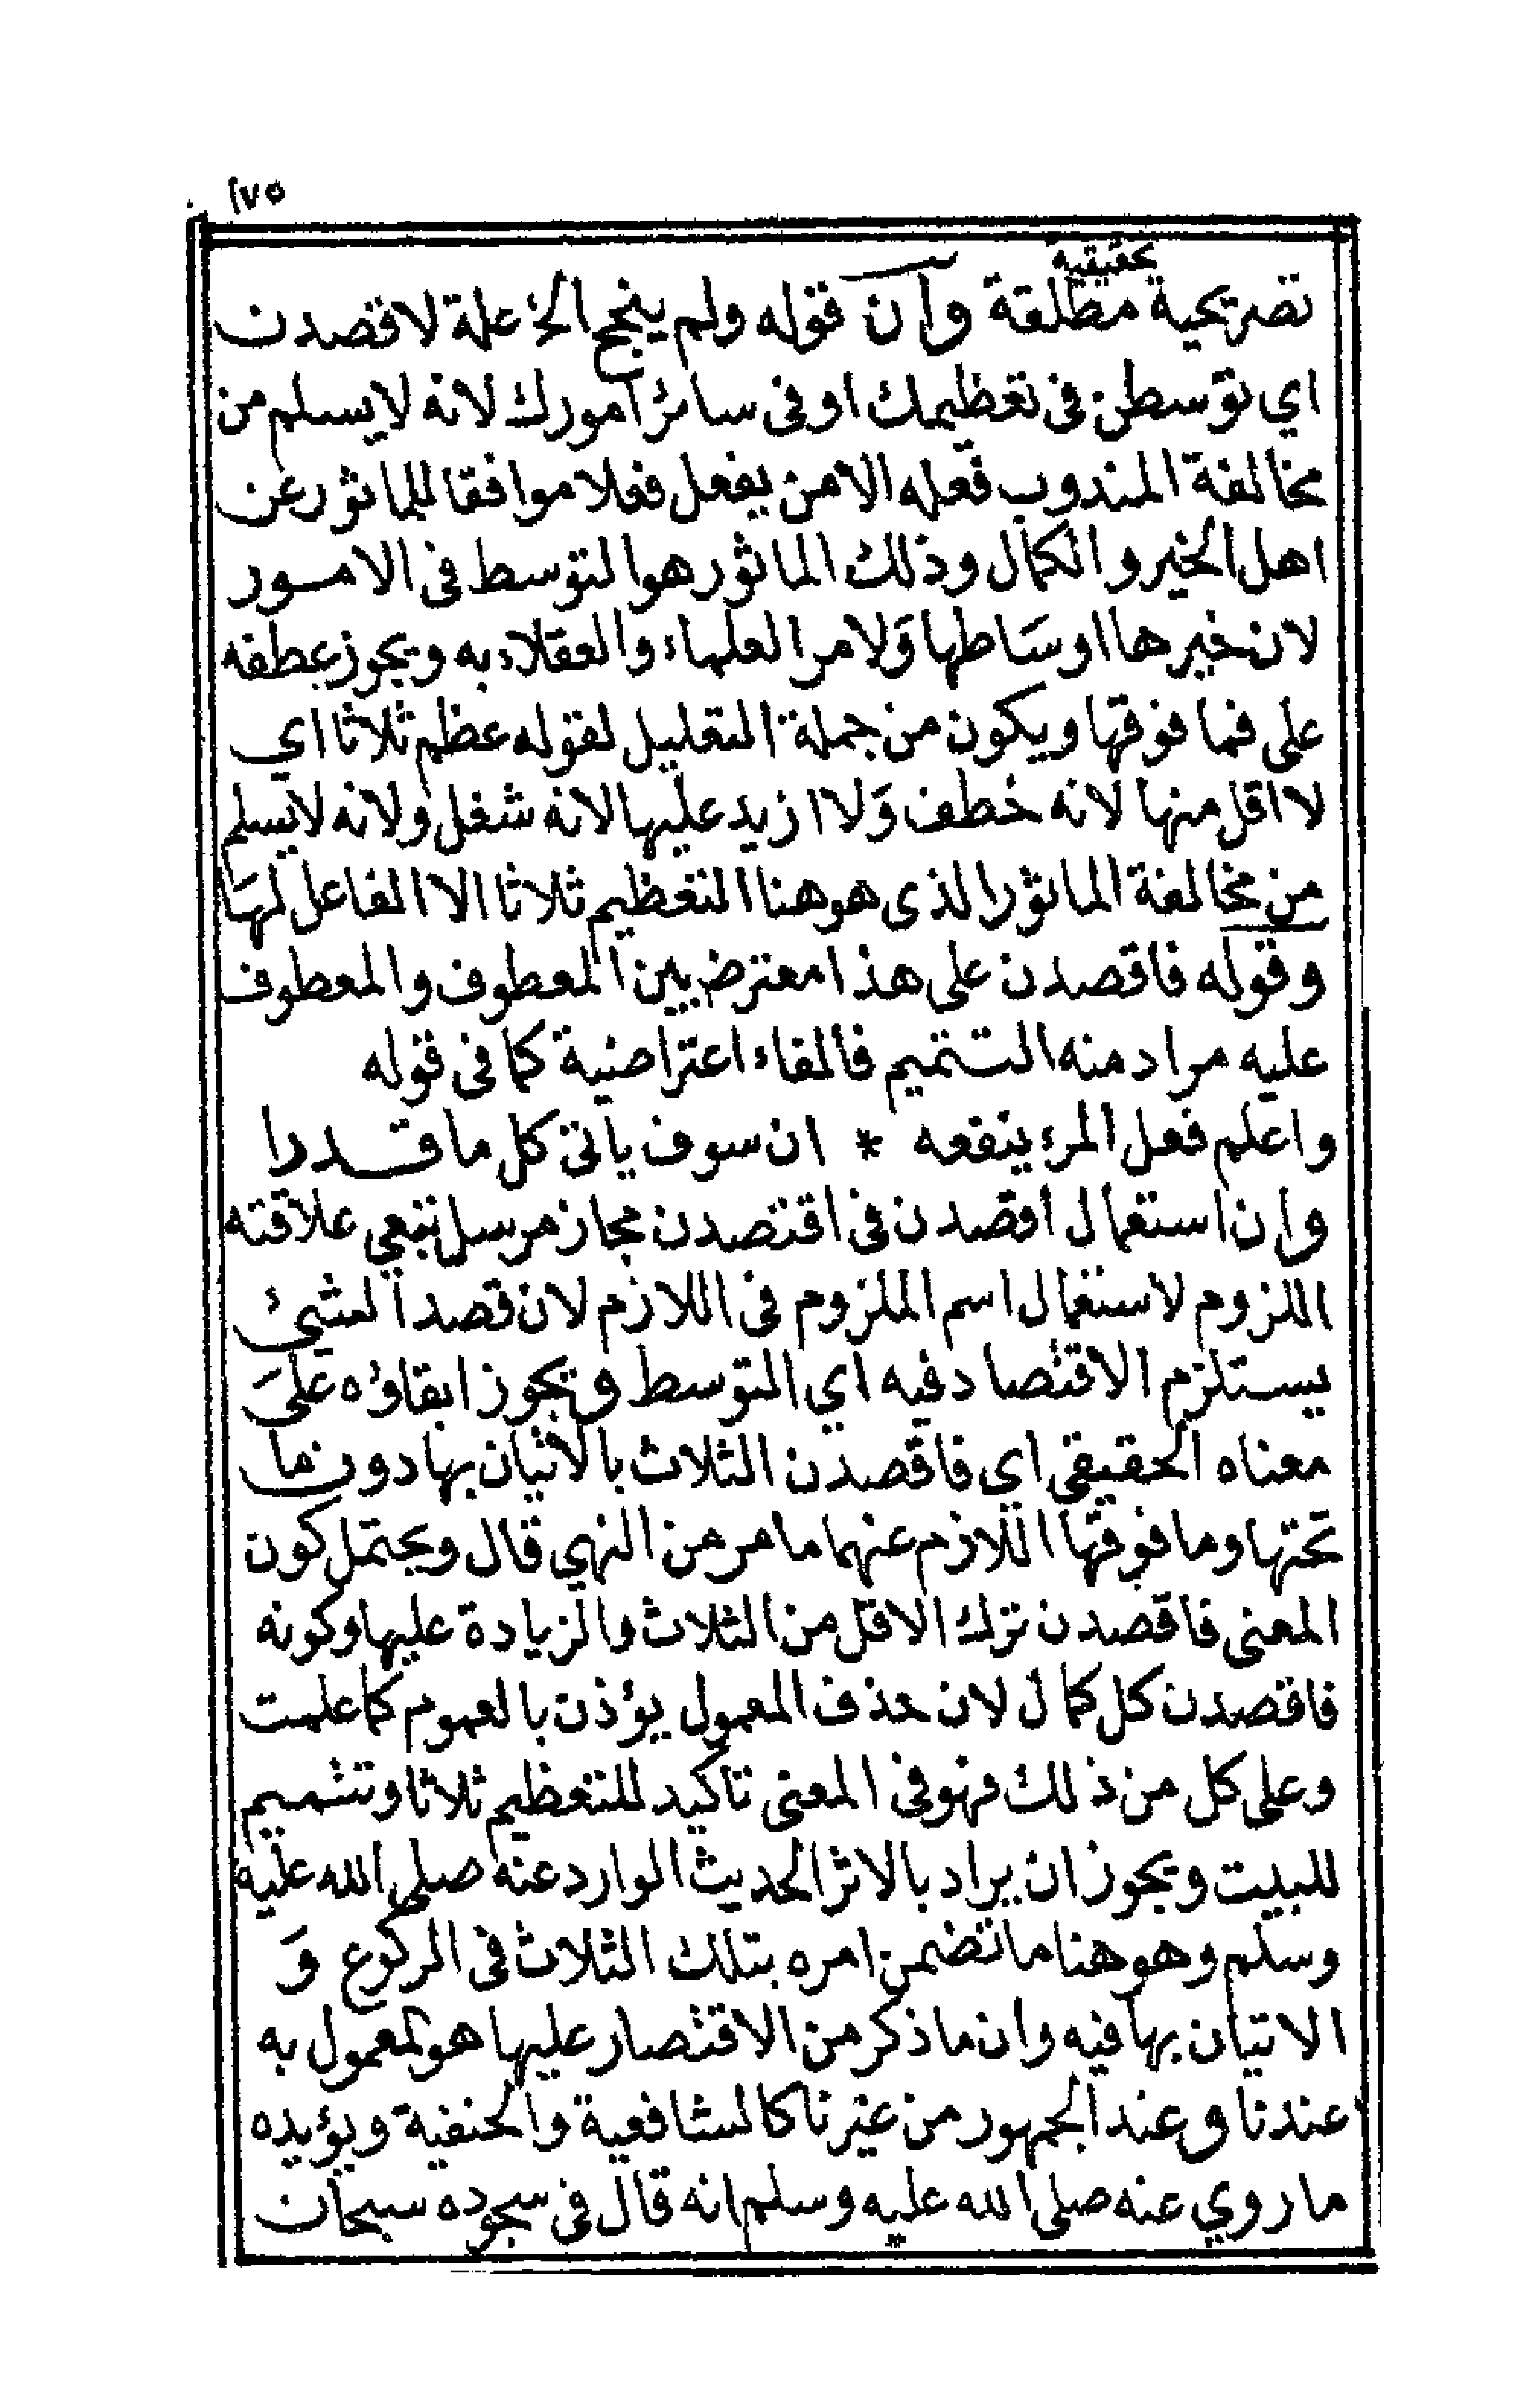 ١٧٥
تحقيقية
تصريحية مطلقة وان قوله ولم ينجح الخ علة لاقصدن
اي توسطن في تعظيمك او في سائر امورك لانه لا يسلم من
مخالفة المندوب فعله الا من يفعل فعلا موافقا للماثور عن
اهل الخير والكمال وذلك الماثور هو التوسط في الامور
لان خيرها اوساطها ولامر العلماء والعقلاء به ويجوز عطفه
على فما فوقها ويكون من جملة التعليل لقوله عظم ثلاثا اي
لا اقل منها لانه خطف ولا ازيد عليها لانه شغل ولانه لا يسلم
من مخالفة الماثور الذى هو هنا التعظيم ثلاثا الا الفاعل لها
وقوله فاقصدن على هذا معترض بين المعطوف والمعطوف
عليه مراد منه التتميم فالفاء اعتراضية كما في قوله
واعلم فعل المرء ينفعه * ان سوف ياتى كل ما قدرا
وان استعمال اقصدن في اقتصدن مجاز مرسل تبعي علاقته
اللزوم لاستعمال اسم الملزوم في اللازم لان قصد الشيء
يستلزم الاقتصاد فيه اي التوسط ويجوز ابقاؤه على
معناه الحقيقي اي فاقصدن الثلاث بالاتيان بها دون ما
تحتها وما فوقها اللازم عنهما ما مر من النهي قال ويحتمل كون
المعنى فاقصدن ترك الاقل من الثلاث والزيادة عليها وكونه
فاقصدن كل كمال لان حذف المعمول يؤذن بالعموم كما علمت
وعلى كل من ذلك فهو في المعنى تاكيد للتعظيم ثلاثا وتتميم
للبيت ويجوز ان يراد بالاثر الحديث الوارد عنه صلى الله عليه
وسلم وهو هنا ما تضمن امره بتلك الثلاث في الركوع و
الاتيان بها فيه وان ما ذكر من الاقتصار عليها هو المعمول به
عندنا وعند الجمهور من غيرنا كالشافعية والحنفية ويؤيده
ما روي عنه صلى الله عليه وسلم انه قال في سجوده سبحان